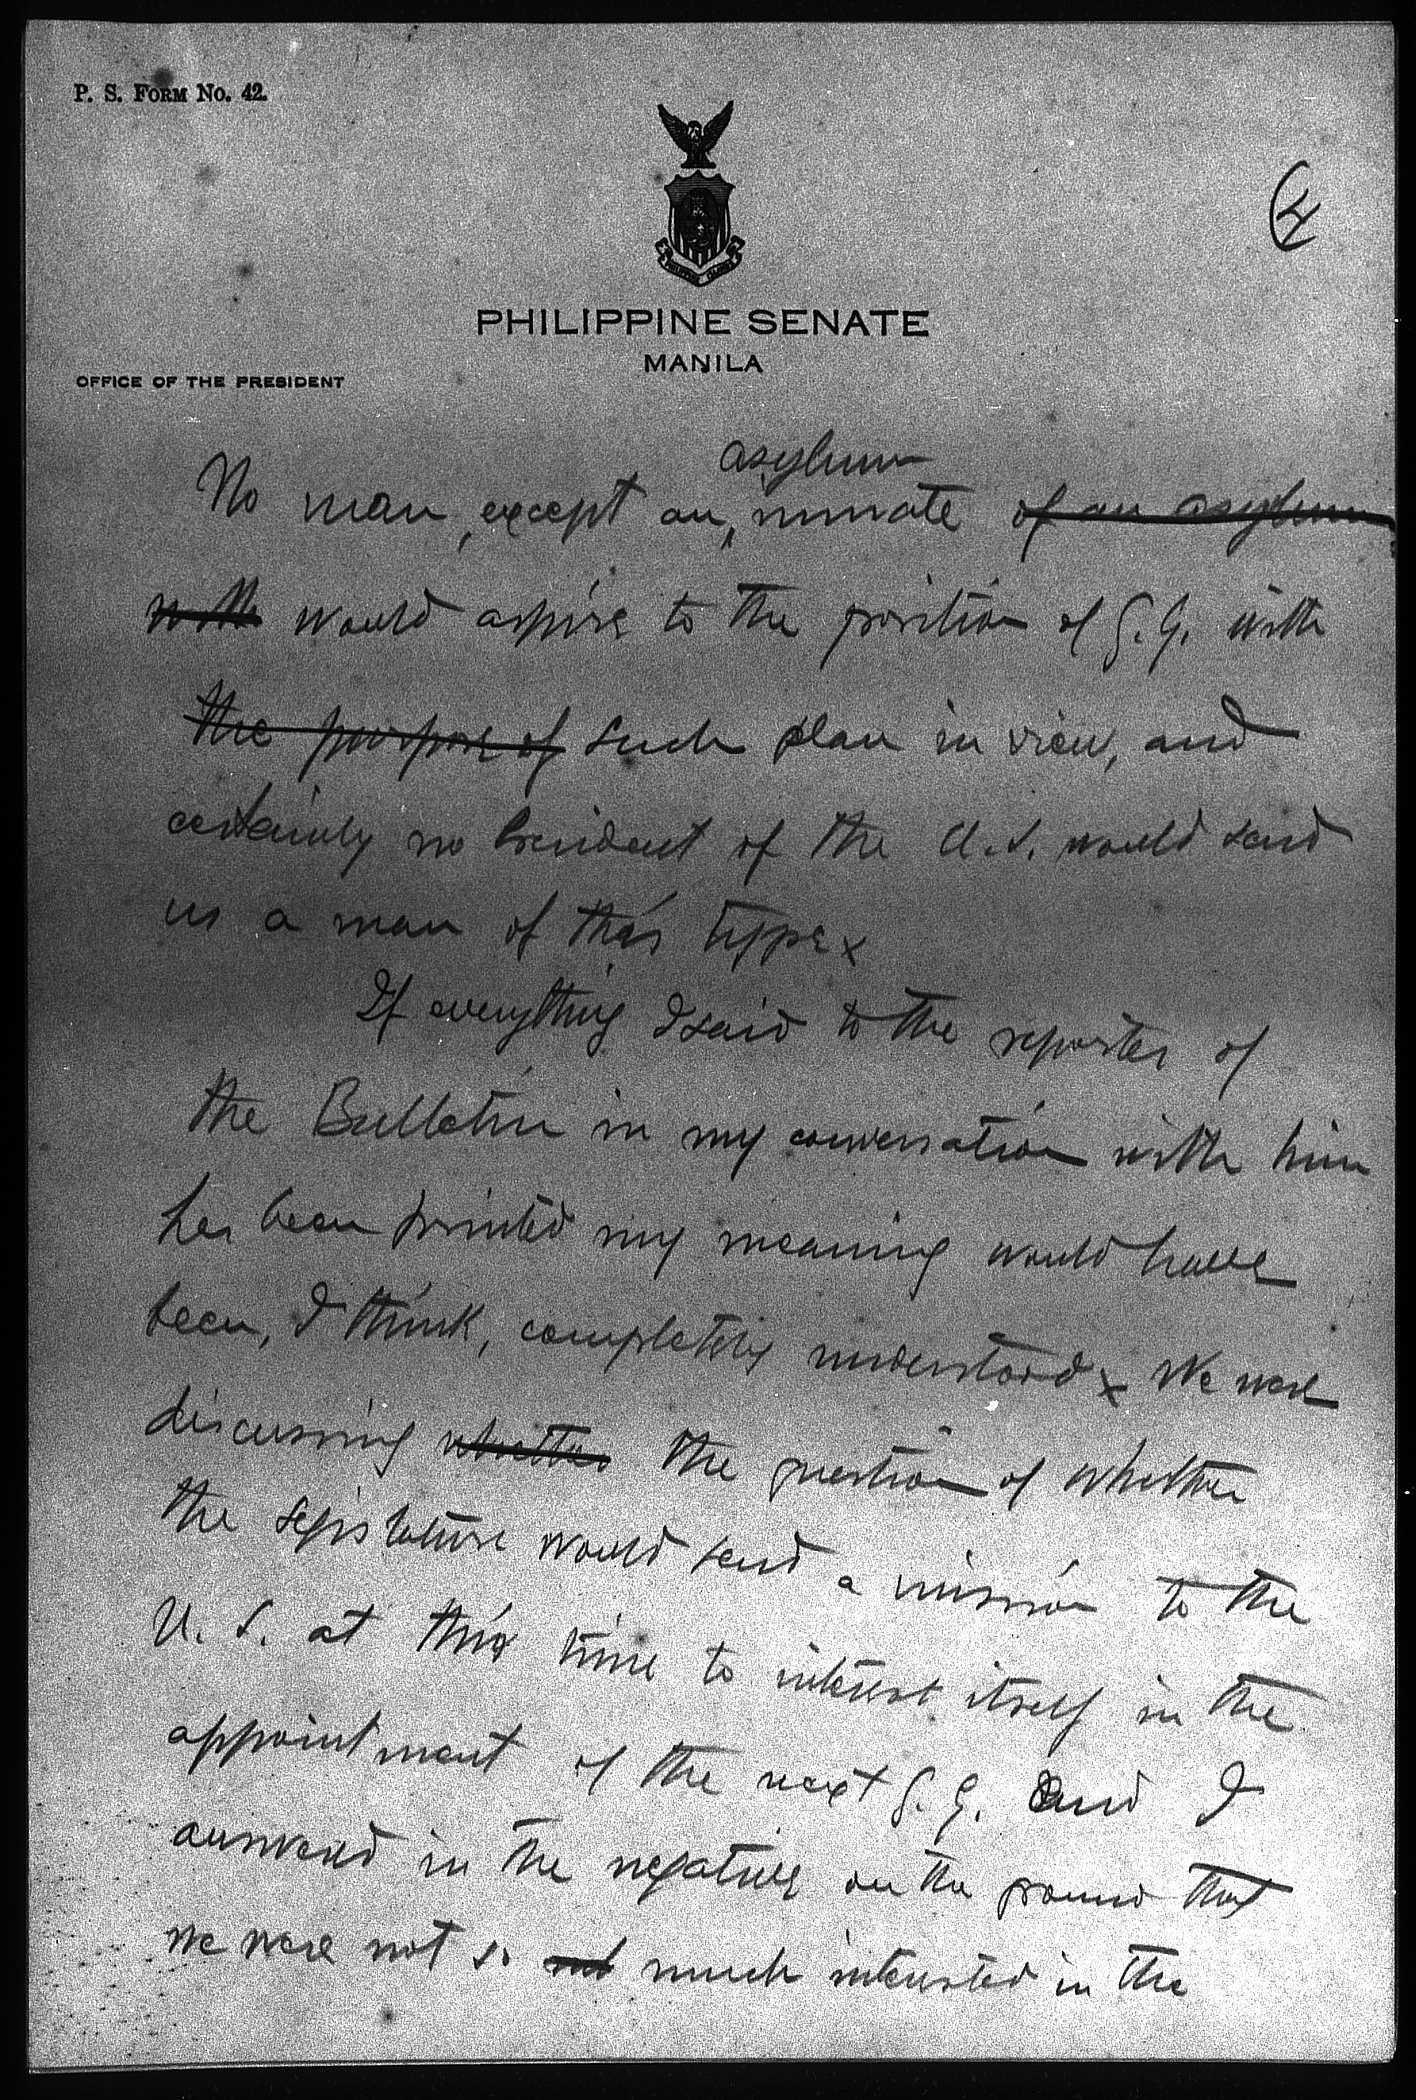 P. S. FORM No. 42.
4
PHILIPPINE SENATE
MANILA
OFFICE OF THE PRESIDENT
asylum
No man, except an inmate of an asylum
with would aspire to the position of G.G. with
the purpose of such plan in view, and
certainly no President of the U.S. would send
us a man of this type x
If everything I said to the reporter of
the Bulletin in my conversation with him
has been printed my meaning would have
been, I think, completely understood x We were
discussing whether the question of whether
the legislature would send a mission to the
U. S. at this time to interest itself in the
appointment of the next G. G. and I
answered in the negative on the ground that
we were not so much interested in the